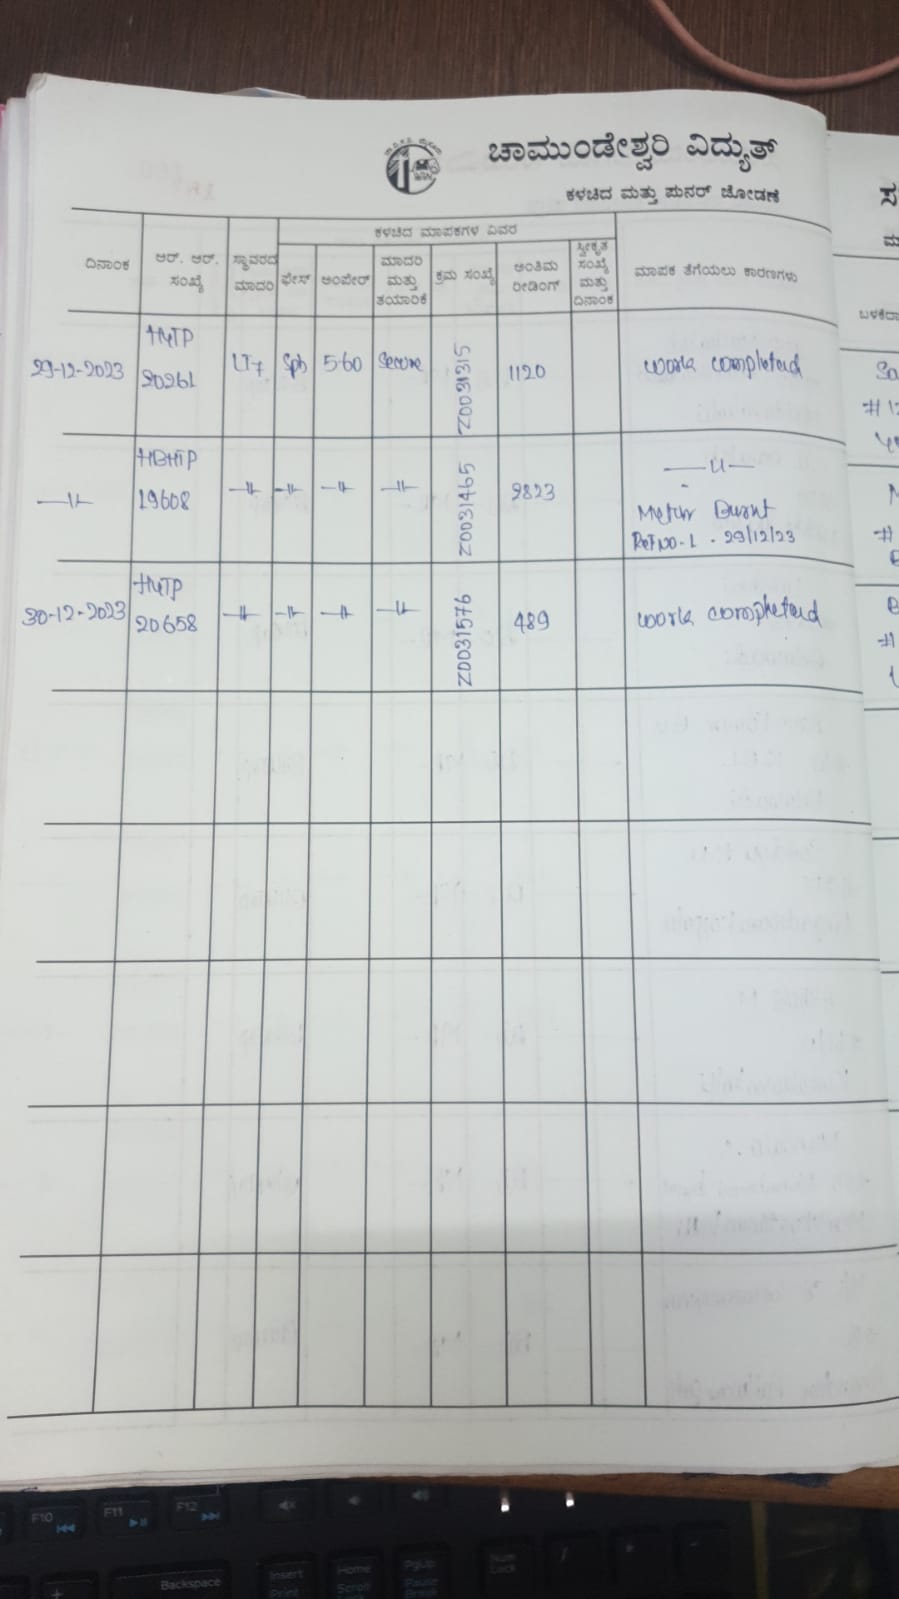 ಚಾಮುಂಡೇಶ್ವರಿ ವಿದ್ಯುತ್
ಕಳಚಿದ ಮತ್ತು ಪುನರ್ ಜೋಡಣೆ
ದಿನಾಂಕ
ಆರ್. ಆರ್. ಸಂಖ್ಯೆ
ಸ್ಥಾವರದ ಮಾದರಿ
ಕಳಚಿದ ಮಾಪಕಗಳ ವಿವರ
ಫೇಸ್
ಅಂಪೇರ್
ಮಾದರಿ ಮತ್ತು ತಯಾರಿಕೆ
ಕ್ರಮ ಸಂಖ್ಯೆ
ಅಂತಿಮ ರೀಡಿಂಗ್
ಸ್ವೀಕೃತ ಸಂಖ್ಯೆ ಮತ್ತು ದಿನಾಂಕ
ಮಾಪಕ ತೆಗೆಯಲು ಕಾರಣಗಳು
29-12-2023 20261 LT7 5-60 Secure Z0031315 1120 work completed
HBHTP 19608 Z0031465 2823
Meter Burnt
Ref NO-1 . 29/12/23
30-12-2023 20658 Z0031576 489 work completed
F10
F11
F12
Backspace
Insert
Home
PgUp
Num
Lock
Scroll
Pause